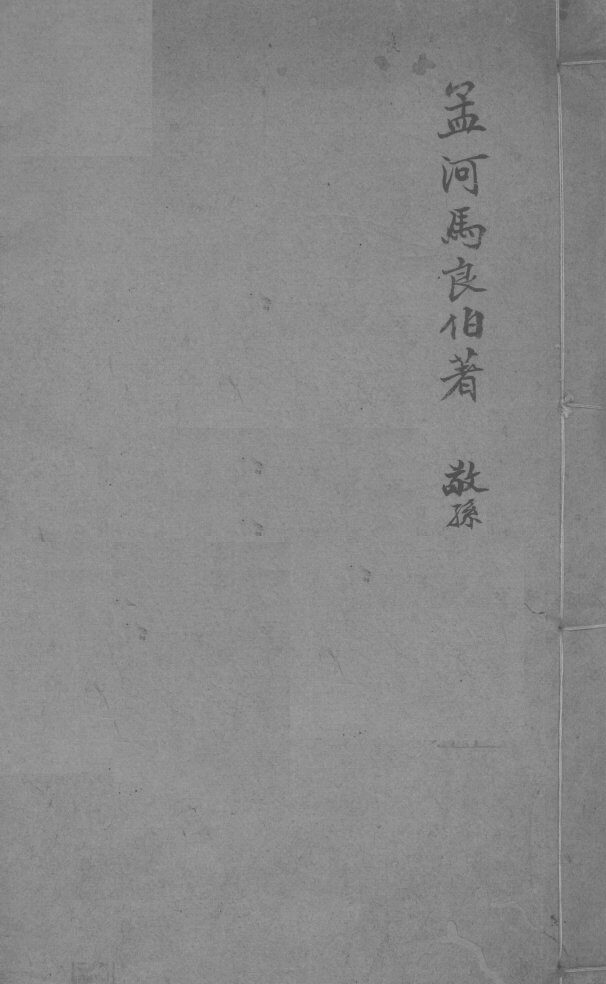 孟河馬良伯著 敬孫